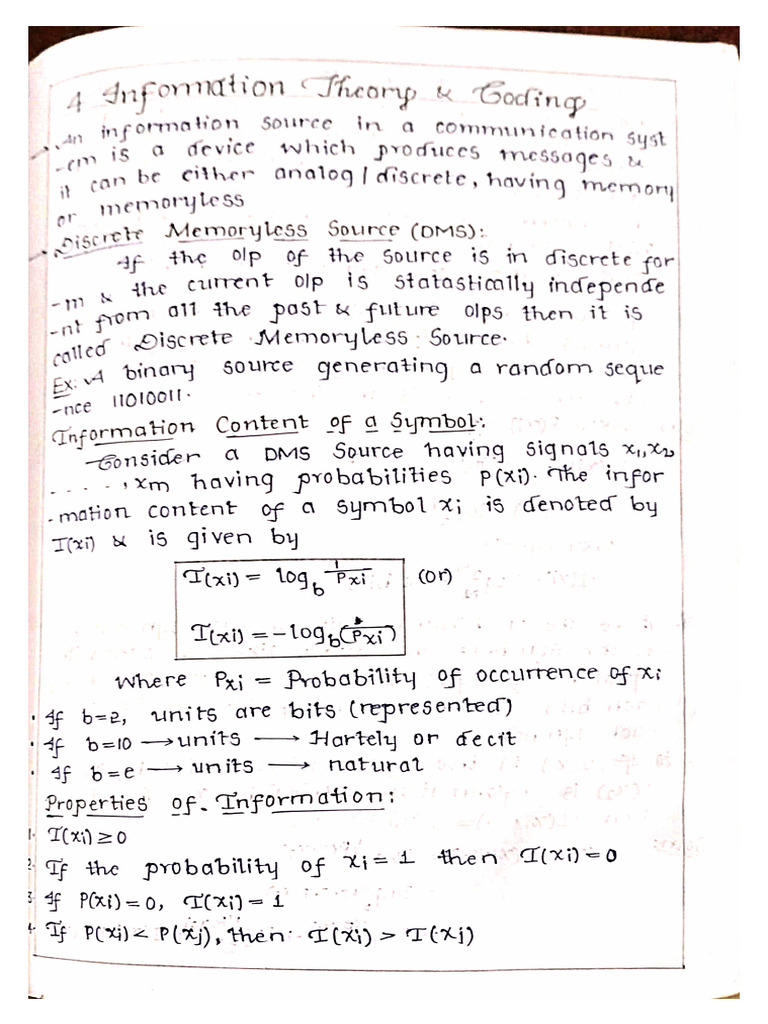 4 Information Theory & Coding
An information source in a communication syst
-em is a device which produces messages &
it can be either analog/discrete, having memory
or memoryless
Discrete Memoryless Source (DMS):
If the o/p of the source is in discrete for
-m & the current o/p is statastically independe
-nt from all the past & future o/ps then it is
called Discrete Memoryless Source.
Ex: A binary source generating a random seque
-nce 11010011.
Information Content of a Symbol:
Consider a DMS Source having signals x1, x2
. . . . . , xm having probabilities P(xi). The infor
-mation content of a symbol xi is denoted by
I(xi) & is given by
I(xi) = log_b 1/Pxi (or)
I(xi) = -log_b (Pxi)
Where Pxi = Probability of occurrence of xi
. If b=2, units are bits (represented)
. If b=10 → units → Hartely or decit
. If b=e → units → natural
Properties of Information:
1. I(xi) ≥ 0
2. If the probability of xi = 1 then I(xi) = 0
3. If P(xi) = 0, I(xi) = 1
4. If P(xi) < P(xj), then I(xi) > I(xj)